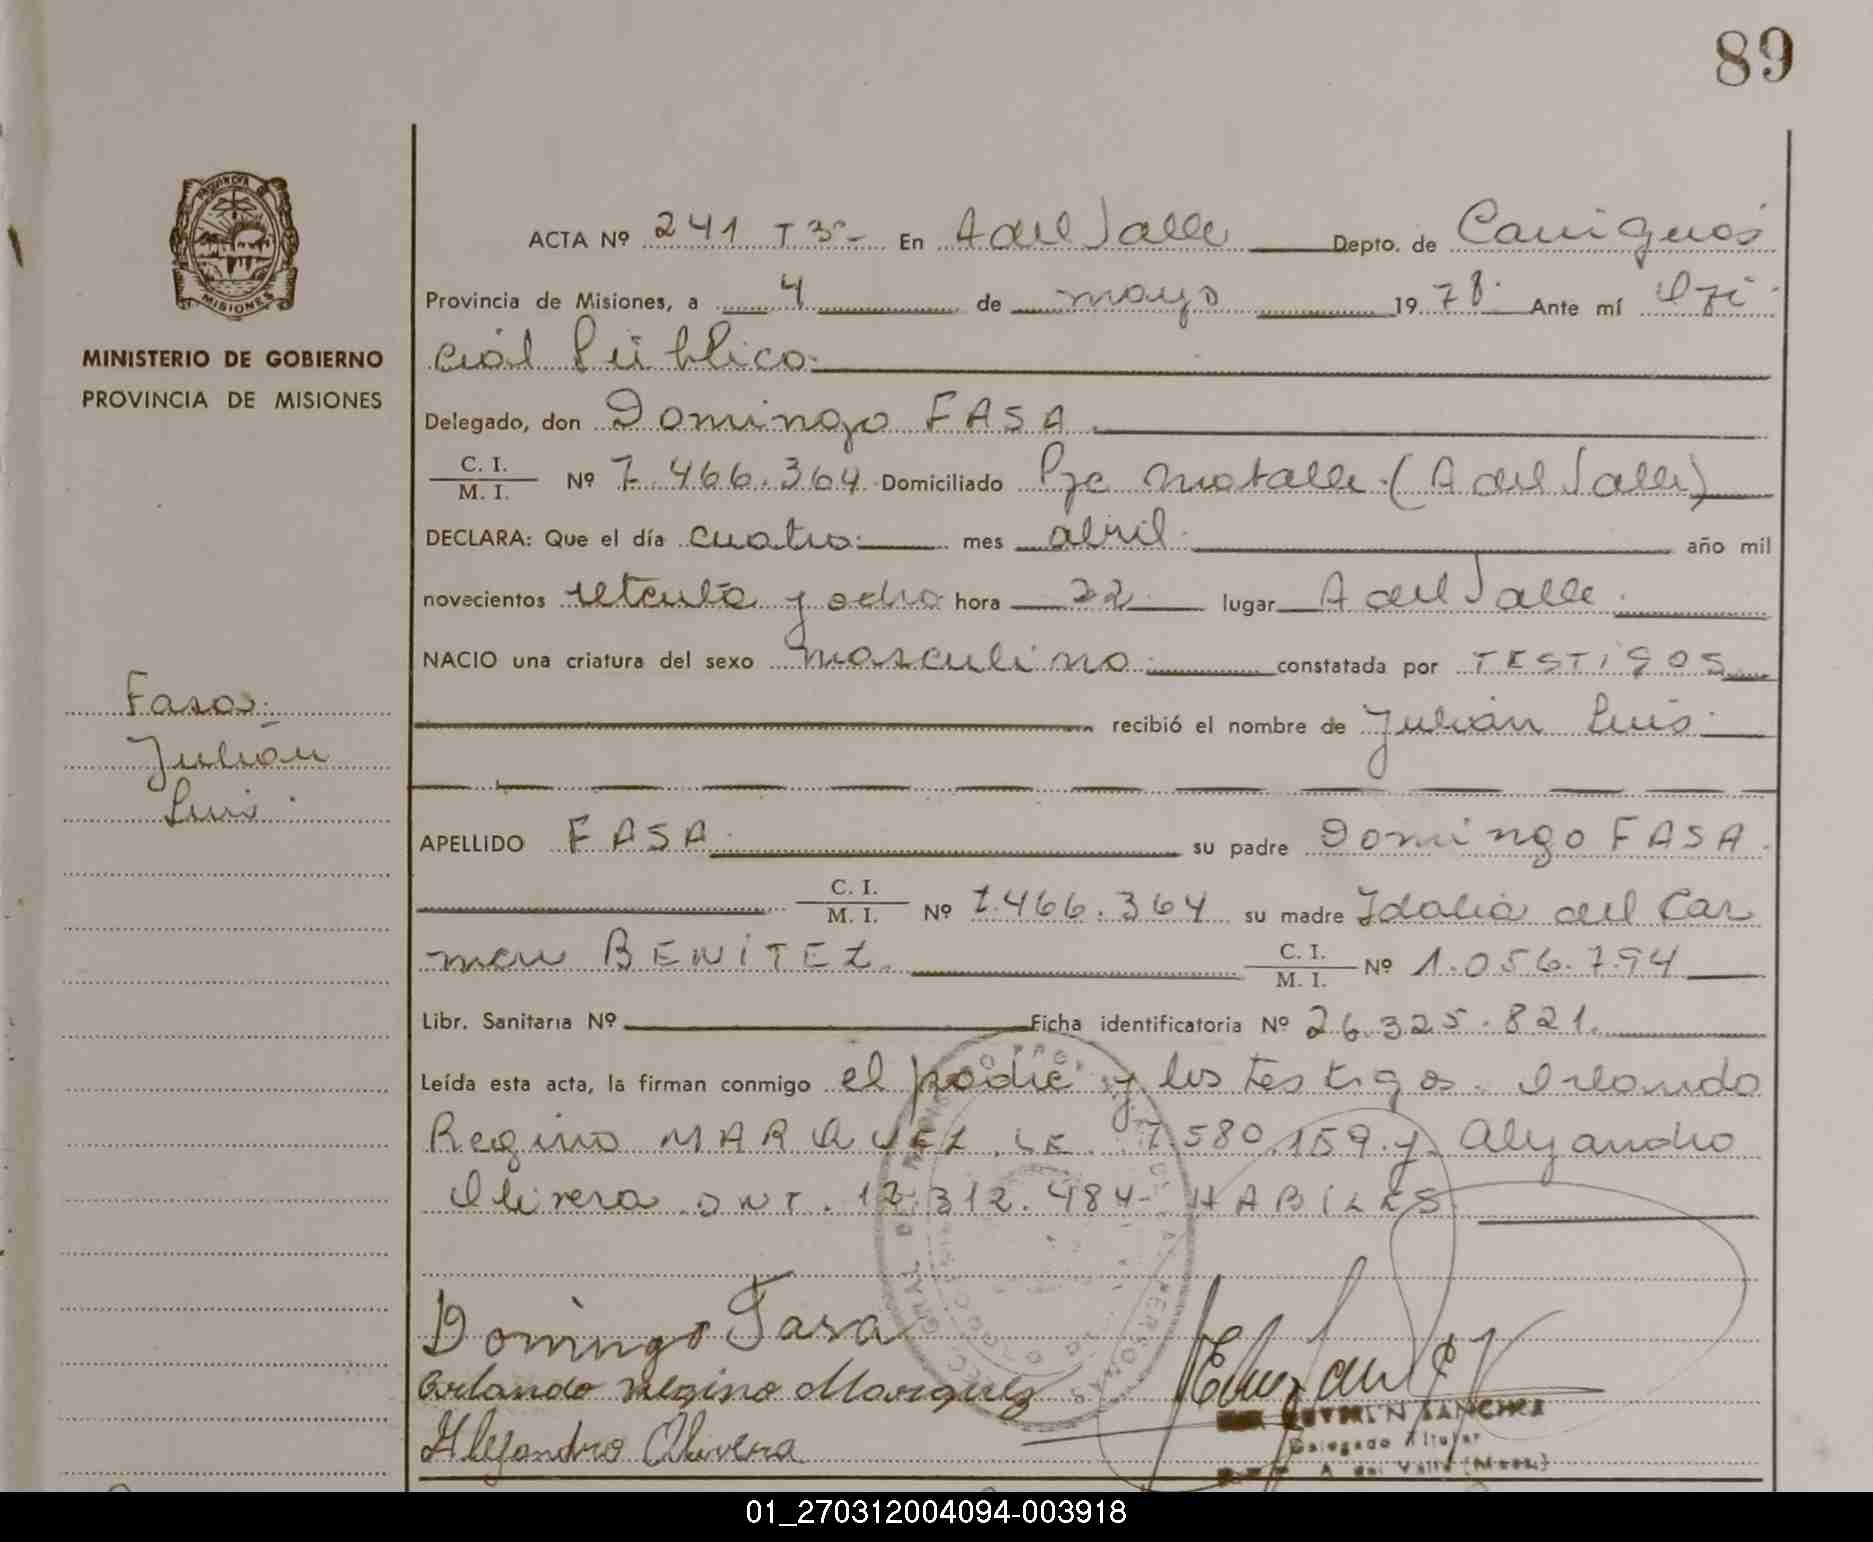 89
PROVINCIA DE
MISIONES
MINISTERIO DE GOBIERNO
PROVINCIA DE MISIONES
Fasa.
Julián
Luis.
ACTA Nº 241 T 3º- En A del Valle Depto. de Cainguás
Provincia de Misiones, a 4 de mayo 1978. Ante mí Ofi
cial Público.
Delegado, don Domingo FASA.
C. I. / M. I. Nº 7.466.364 Domiciliado Pje (A del Valle)
DECLARA: Que el día cuatro mes abril. año mil
novecientos setenta y ocho hora 22 lugar A del Valle.
NACIO una criatura del sexo masculino. constatada por TESTIGOS
recibió el nombre de Julián Luis.
APELLIDO FASA. su padre Domingo FASA.
C. I. / M. I. Nº 7.466.364 su madre Idalia del Car
men BENITEZ. C. I. / M. I. Nº 1.056.794
Libr. Sanitaria Nº Ficha identificatoria Nº 26.325.821.
Leída esta acta, la firman conmigo el padre y los testigos. Orlando
Regino MARQUEZ LE. 7.580.159 y Alejandro
Olivera DNI. 12.312.484- HABILES
Domingo Fasa
Orlando Regino Marquez
Alejandro Olivera
SANCHEZ
Delegado Titular
A. del Valle (Mnes.)
01_270312004094-003918